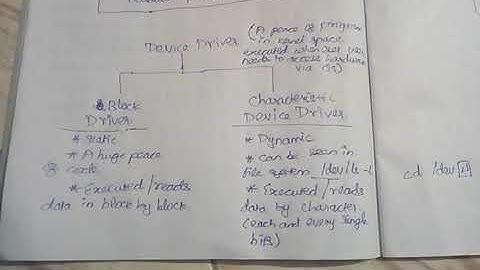 Device Driver
(A peace of program
in kernel space
executed when ever user
needs to access hardware
via
Block
Driver
* Static
* A huge peace
of code
* Executed/reads
data in block by block
Characteristic
Device Driver
* Dynamic
* can be seen in
file system /dev/ls -l
* Executed/reads
data by character
(each and every single
bits)
cd /dev